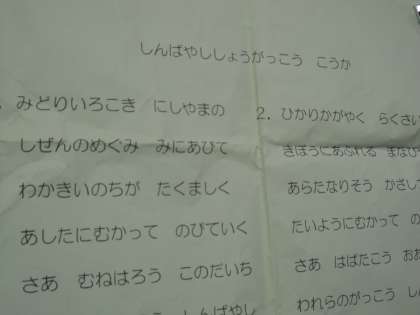 しんばやししょうがっこう こうか
みどりいろこき にしやまの
しぜんのめぐみ みにあびて
わかきいのちが たくましく
あしたにむかって のびていく
さあ むねはろう このだいち
しんばやし
2. ひかりかがやく らくさい
きぼうにあふれる まなび
あらたなりそう かざして
たいようにむかって の
さあ はばたこう おお
われらのがっこう しん